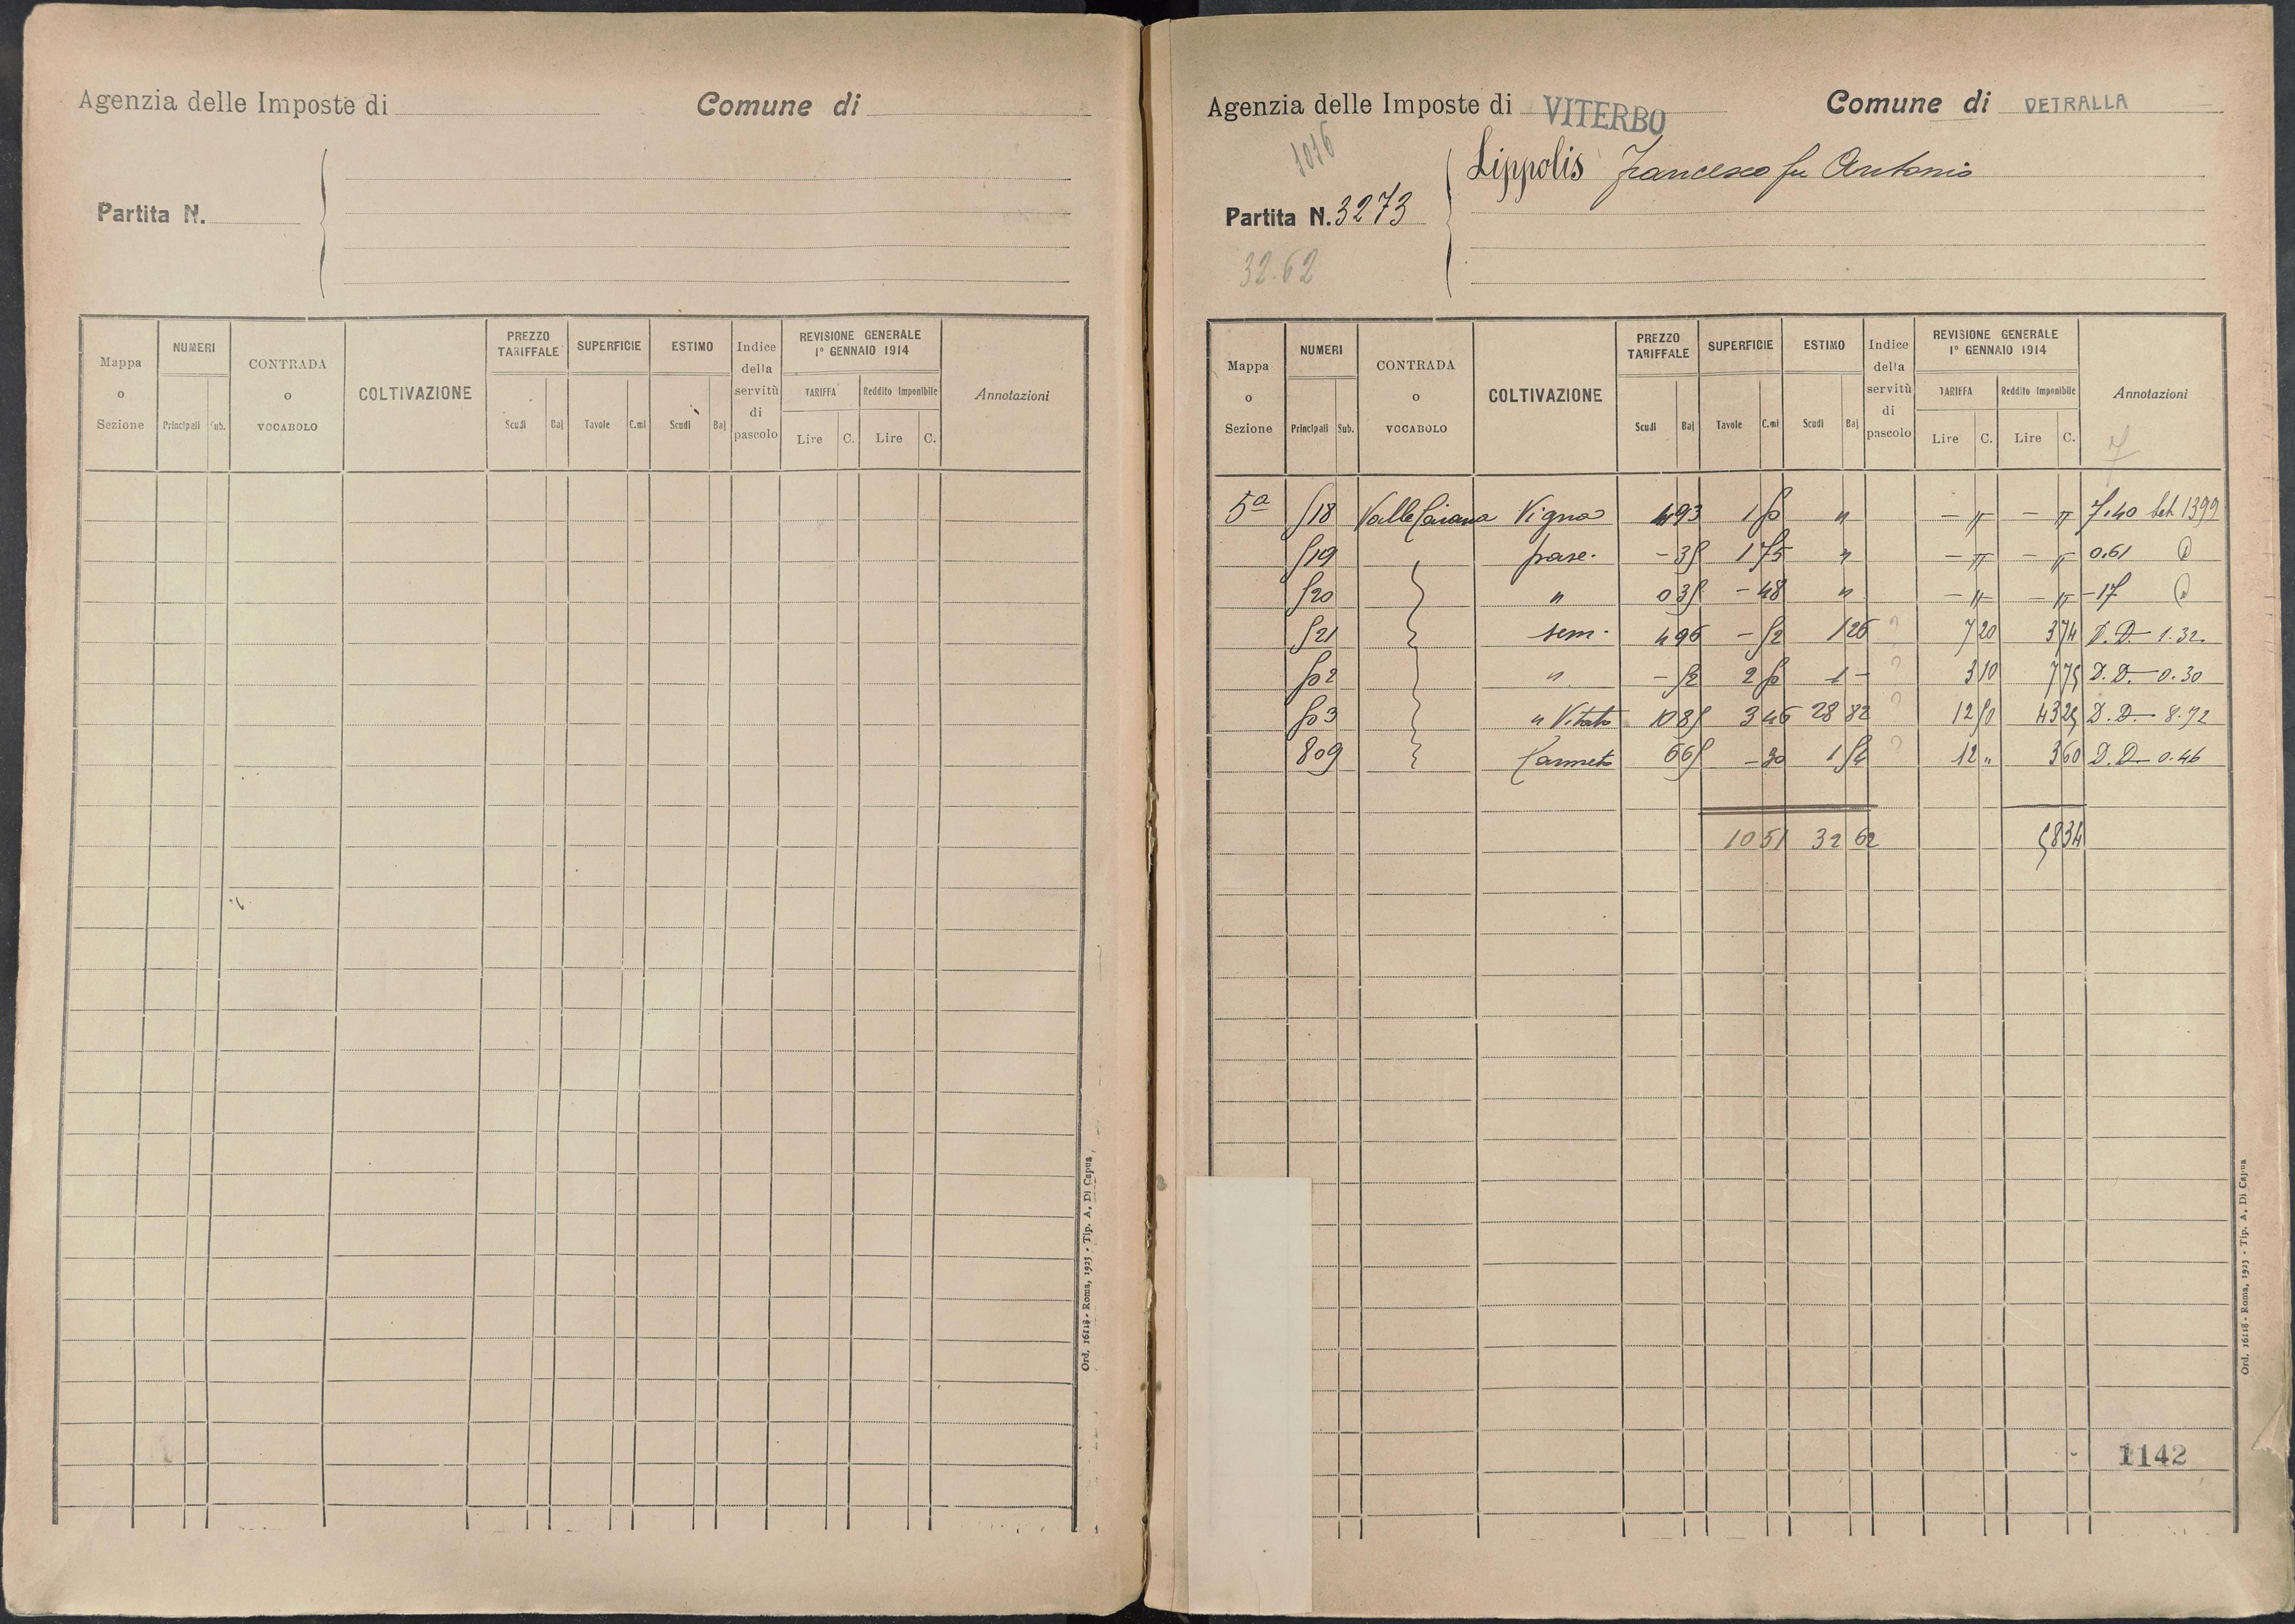 Agenzia delle Imposte di
Comune di
Partita N.
Mappa o Sezione
NUMERI
Principali Sub.
CONTRADA o VOCABOLO
COLTIVAZIONE
PREZZO TARIFFALE
Scudi Baj
SUPERFICIE
Tavole C.mi
ESTIMO
Scudi Baj
Indice della servitù di pascolo
REVISIONE GENERALE
1° GENNAIO 1914
TARIFFA Reddito Imponibile
Lire C. Lire C.
Annotazioni
Ord. 16118 - Roma, 1923 - Tip. A. Di Capua
Agenzia delle Imposte di VITERBO
Comune di VETRALLA
1016
Lippolis Francesco fu Antonio
Partita N. 3273
32.62
Mappa o Sezione
NUMERI
Principali Sub.
CONTRADA o VOCABOLO
COLTIVAZIONE
PREZZO TARIFFALE
Scudi Baj
SUPERFICIE
Tavole C.mi
ESTIMO
Scudi Baj
Indice della servitù di pascolo
REVISIONE GENERALE
1° GENNAIO 1914
TARIFFA Reddito Imponibile
Lire C. Lire C.
Annotazioni
7
5a 518 Valle Caiana Vigna 4 93 1 50 " — " — " 7.40 1399
519 pasc. - 35 1 75 " — " — " 0.61
520 " 0 35 - 48 " — " — " - 17
521 sem. 4 96 - 52 1 26 ? 7 20 3 74 D.D. 1.32
502 " - 52 2 50 1 - ? 3 10 7 75 D.D. 0.30
503 " Vitato 10 85 3 46 28 82 ? 12 50 43 25 D.D. 8.72
809 Canneto 6 65 - 30 1 54 ? 12 " 3 60 D.D. 0.46
10 51 32 62 58 34
1142
Ord. 16118 - Roma, 1923 - Tip. A. Di Capua